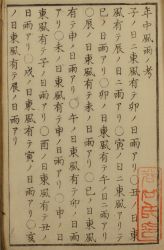 年中風雨考
子ノ日ニ東風有テ
風有テ辰ノ日ニ雨アリ〇寅ノ日東
巳ノ日雨アリ〇卯ノ日東風有テ午ノ日ニ雨アリ
〇辰ノ日東風有テ
有テ申ノ日雨アリ〇午ノ日東風有テ
アリ〇未ノ日東風有テ申ノ日雨アリ〇申ノ日
東風有テ子ノ日雨アリ〇酉ノ日東風有テ丑ノ
日雨アリ〇戌ノ日東風有テ寅ノ日雨アリ〇亥
ノ日東風有テ辰ノ日雨アリ